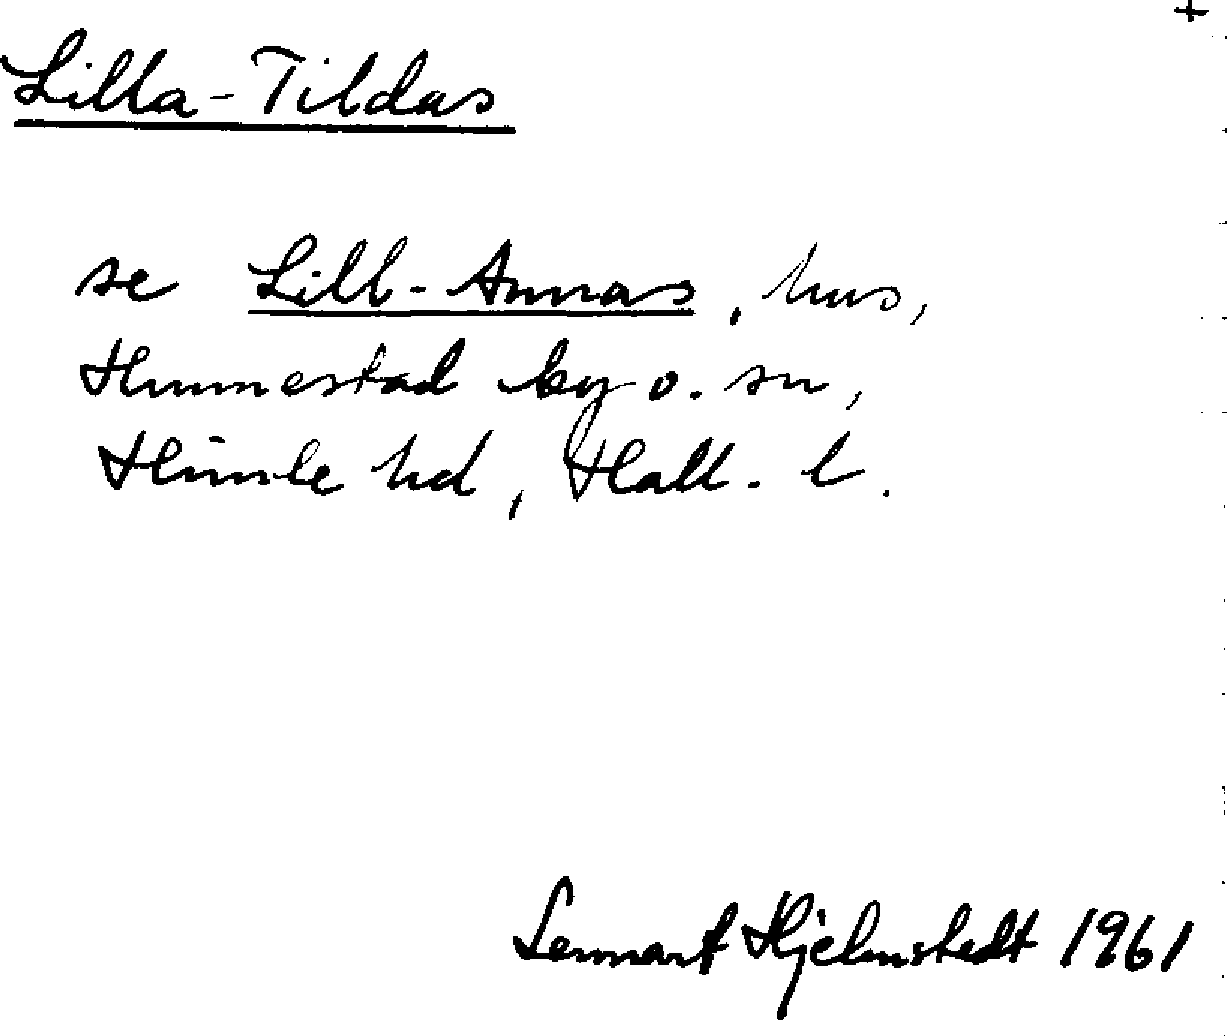 +
Lilla-Tildas
se Lill-Annas, hus,
Hunnestad by o. sn,
Himle hd, Hall. l.
Lennart Hjelmstedt 1961